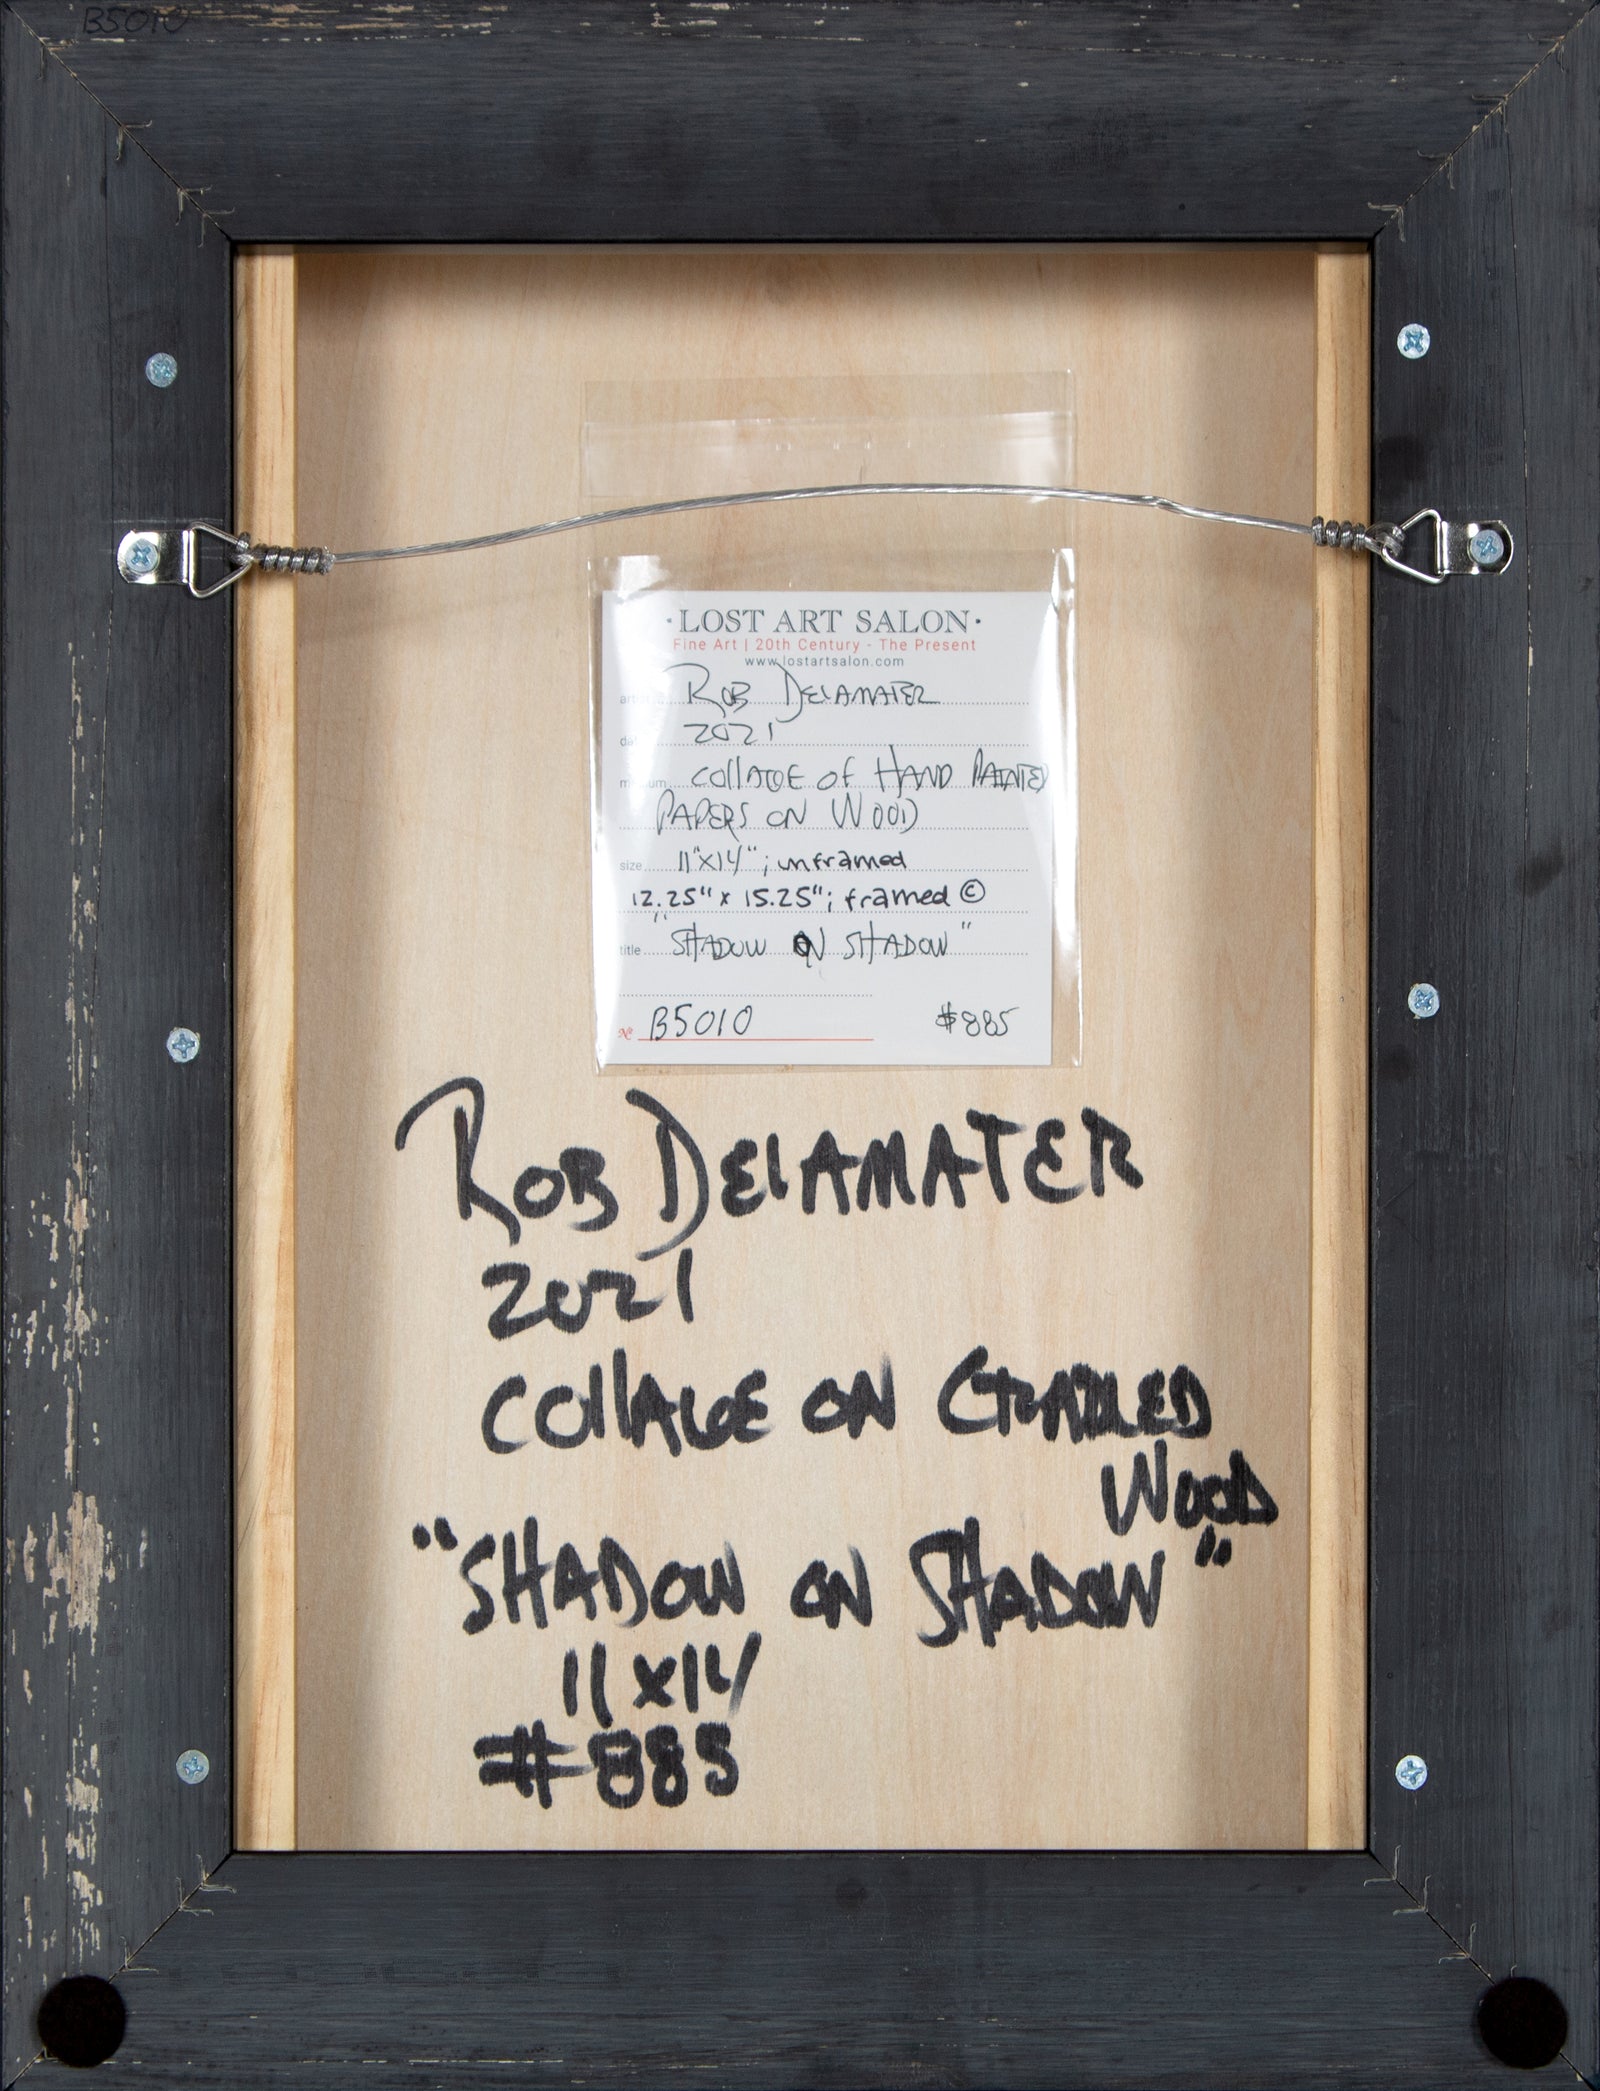 B5010
·LOST ART SALON·
Fine Art | 20th Century - The Present
www.lostartsalon.com
artist ROB DELAMATER
date 2021
medium COLLAGE OF HAND PAINTED
PAPERS ON WOOD
size 11"X14"; unframed
12.25" x 15.25"; framed ©
title "SHADOW ON SHADOW"
№ B5010 $885
ROB DELAMATER
2021
COLLAGE ON CRADLED
WOOD
"SHADOW ON SHADOW"
11X14
#885